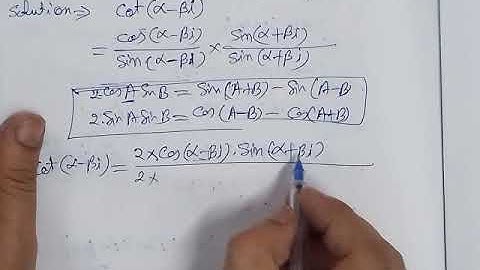 Solution ⇒ cot(α-βi)
= cos(α-βi)/sin(α-βi) × Sin(α+βi)/Sin(α+βi)
2 cos A Sin B = Sin(A+B) - Sin(A-B)
2. Sin A Sin B = Cos(A-B) - Cos(A+B)
cot(α-βi) = 2×Cos(α-βi).Sin(α+βi)
2×